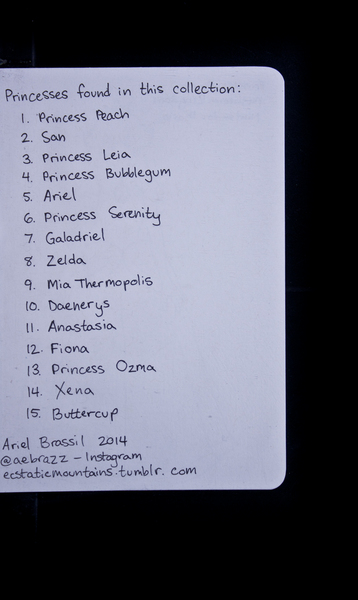 Princesses found in this collection:
1. Princess Peach
2. San
3. Princess Leia
4. Princess Bubblegum
5. Ariel
6. Princess Serenity
7. Galadriel
8. Zelda
9. Mia Thermopolis
10. Daenerys
11. Anastasia
12. Fiona
13. Princess Ozma
14. Xena
15. Buttercup
Ariel Brassil 2014
@aebrazz - Instagram
ecstaticmountains.tumblr.com